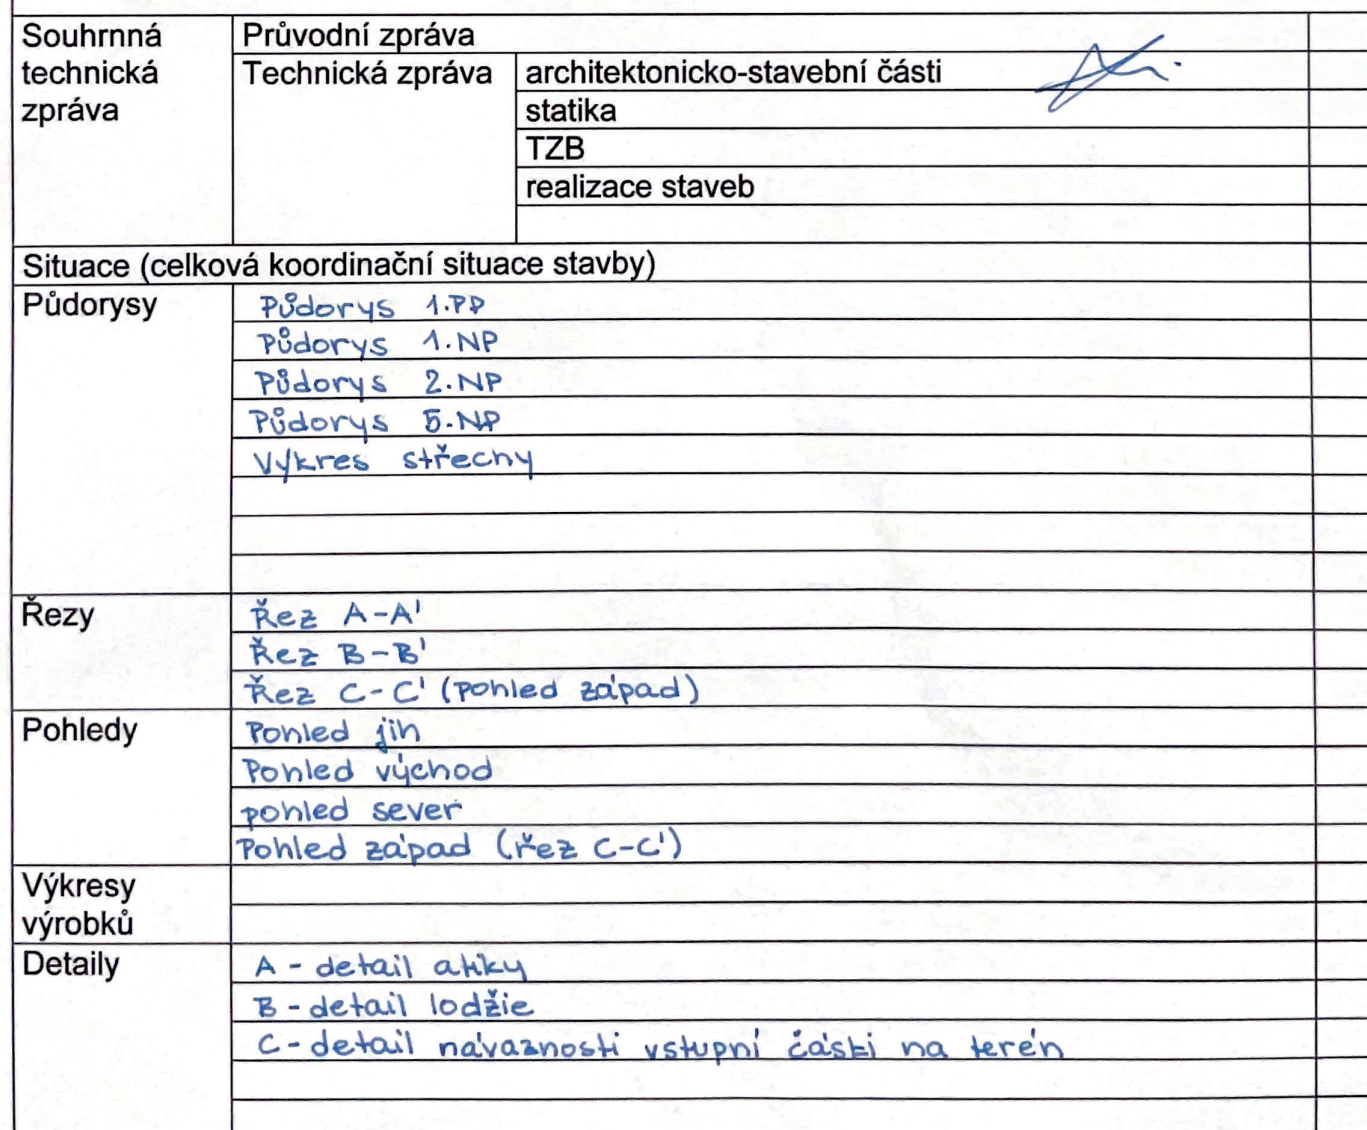 Souhrnná technická zpráva
Průvodní zpráva
Technická zpráva
architektonicko-stavební části
statika
TZB
realizace staveb
Situace (celková koordinační situace stavby)
Půdorysy
Půdorys 1.PP
Půdorys 1.NP
Půdorys 2.NP
Půdorys 5.NP
Výkres střechy
Řezy
Řez A-A'
Řez B-B'
Řez C-C' (pohled západ)
Pohledy
Pohled jih
Pohled východ
pohled sever
Pohled západ (řez C-C')
Výkresy výrobků
Detaily
A - detail atiky
B - detail lodžie
C - detail návaznosti vstupní části na terén